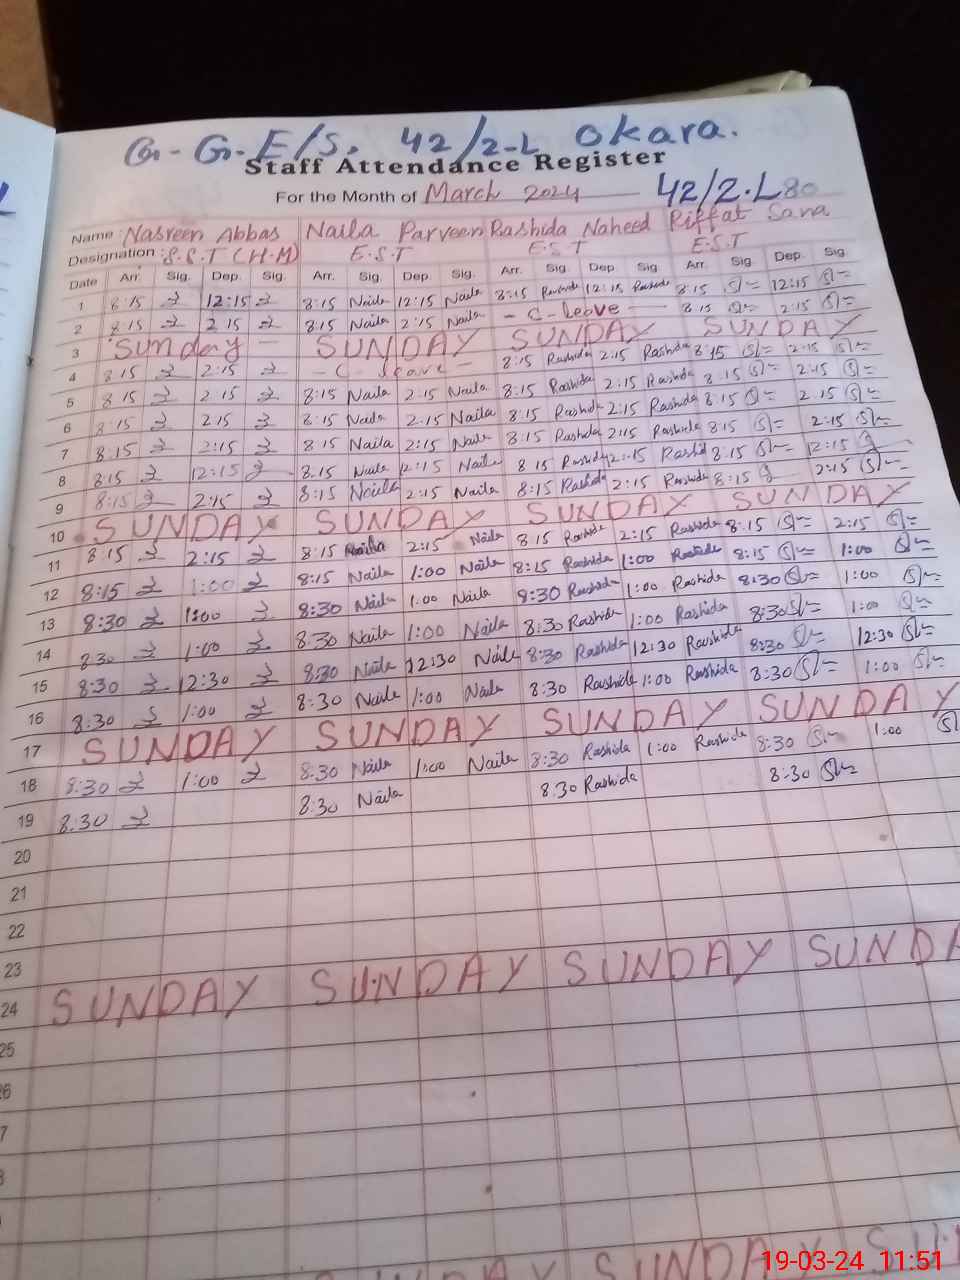 G. G. E/S. 42/2-L Okara.
Staff Attendance Register
For the Month of March 2024 42/2.L 80
Name : Nasreen Abbas Naila Parveen Rashida Naheed Riffat Sana
Designation : S.S.T (H.M) E.S.T E.S.T E.S.T
Date Arr. Sig. Dep. Sig. Arr. Sig. Dep. Sig. Arr. Sig. Dep. Sig. Arr. Sig. Dep. Sig.
1 8:15 12:15 8:15 Naila 12:15 Naila 8:15 Rashida 12:15 Rashida 8:15 12:15
2 8:15 2:15 8:15 Naila 2:15 Naila - C - Leave - 8:15 2:15
3 Sunday - SUNDAY SUNDAY SUNDAY
4 8:15 2:15 - C - Leave - 8:15 Rashida 2:15 Rashida 8:15 2:15
5 8:15 2:15 8:15 Naila 2:15 Naila 8:15 Rashida 2:15 Rashida 8:15 2:15
6 8:15 2:15 8:15 Naila 2:15 Naila 8:15 Rashida 2:15 Rashida 8:15 2:15
7 8:15 2:15 8:15 Naila 2:15 Naila 8:15 Rashida 2:15 Rashida 8:15 2:15
8 8:15 12:15 8:15 Naila 12:15 Naila 8:15 Rashida 12:15 Rashida 8:15 12:15
9 8:15 2:15 8:15 Naila 2:15 Naila 8:15 Rashida 2:15 Rashida 8:15 2:15
10 SUNDAY SUNDAY SUNDAY SUNDAY
11 8:15 2:15 8:15 Naila 2:15 Naila 8:15 Rashida 2:15 Rashida 8:15 2:15
12 8:15 1:00 8:15 Naila 1:00 Naila 8:15 Rashida 1:00 Rashida 8:15 1:00
13 8:30 1:00 8:30 Naila 1:00 Naila 8:30 Rashida 1:00 Rashida 8:30 1:00
14 8:30 1:00 8:30 Naila 1:00 Naila 8:30 Rashida 1:00 Rashida 8:30 1:00
15 8:30 12:30 8:30 Naila 12:30 Naila 8:30 Rashida 12:30 Rashida 8:30 12:30
16 8:30 1:00 8:30 Naila 1:00 Naila 8:30 Rashida 1:00 Rashida 8:30 1:00
17 SUNDAY SUNDAY SUNDAY SUNDAY
18 8:30 1:00 8:30 Naila 1:00 Naila 8:30 Rashida 1:00 Rashida 8:30 1:00
19 8:30 8:30 Naila 8:30 Rashida 8:30
20
21
22
23
24 SUNDAY SUNDAY SUNDAY SUNDA
25
6
7
SUNDAY SUNDAY SUN
19-03-24 11:51